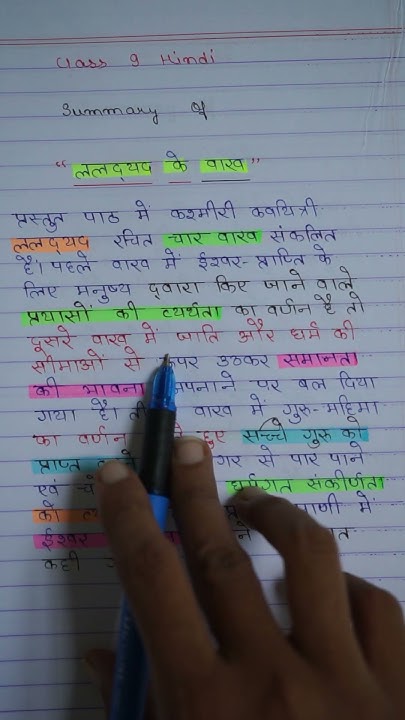 Class 9 Hindi
Summary of
"ललद्यद के वाख"
प्रस्तुत पाठ में कश्मीरी कवयित्री
ललद्यद रचित चार वाख संकलित
हैं। पहले वाख में ईश्वर-प्राप्ति के
लिए मनुष्य द्वारा किए जाने वाले
प्रयासों की व्यर्थता का वर्णन है तो
दूसरे वाख में जाति और धर्म की
सीमाओं से ऊपर उठकर समानता
की भावना पर बल दिया
गया है। वाख में गुरु-महिमा
का वर्णन हुए सच्चे गुरु को
प्राप्त से पार पाने
एवं धर्मगत संकीर्णता
को प्राणी में
ईश्वर
कही